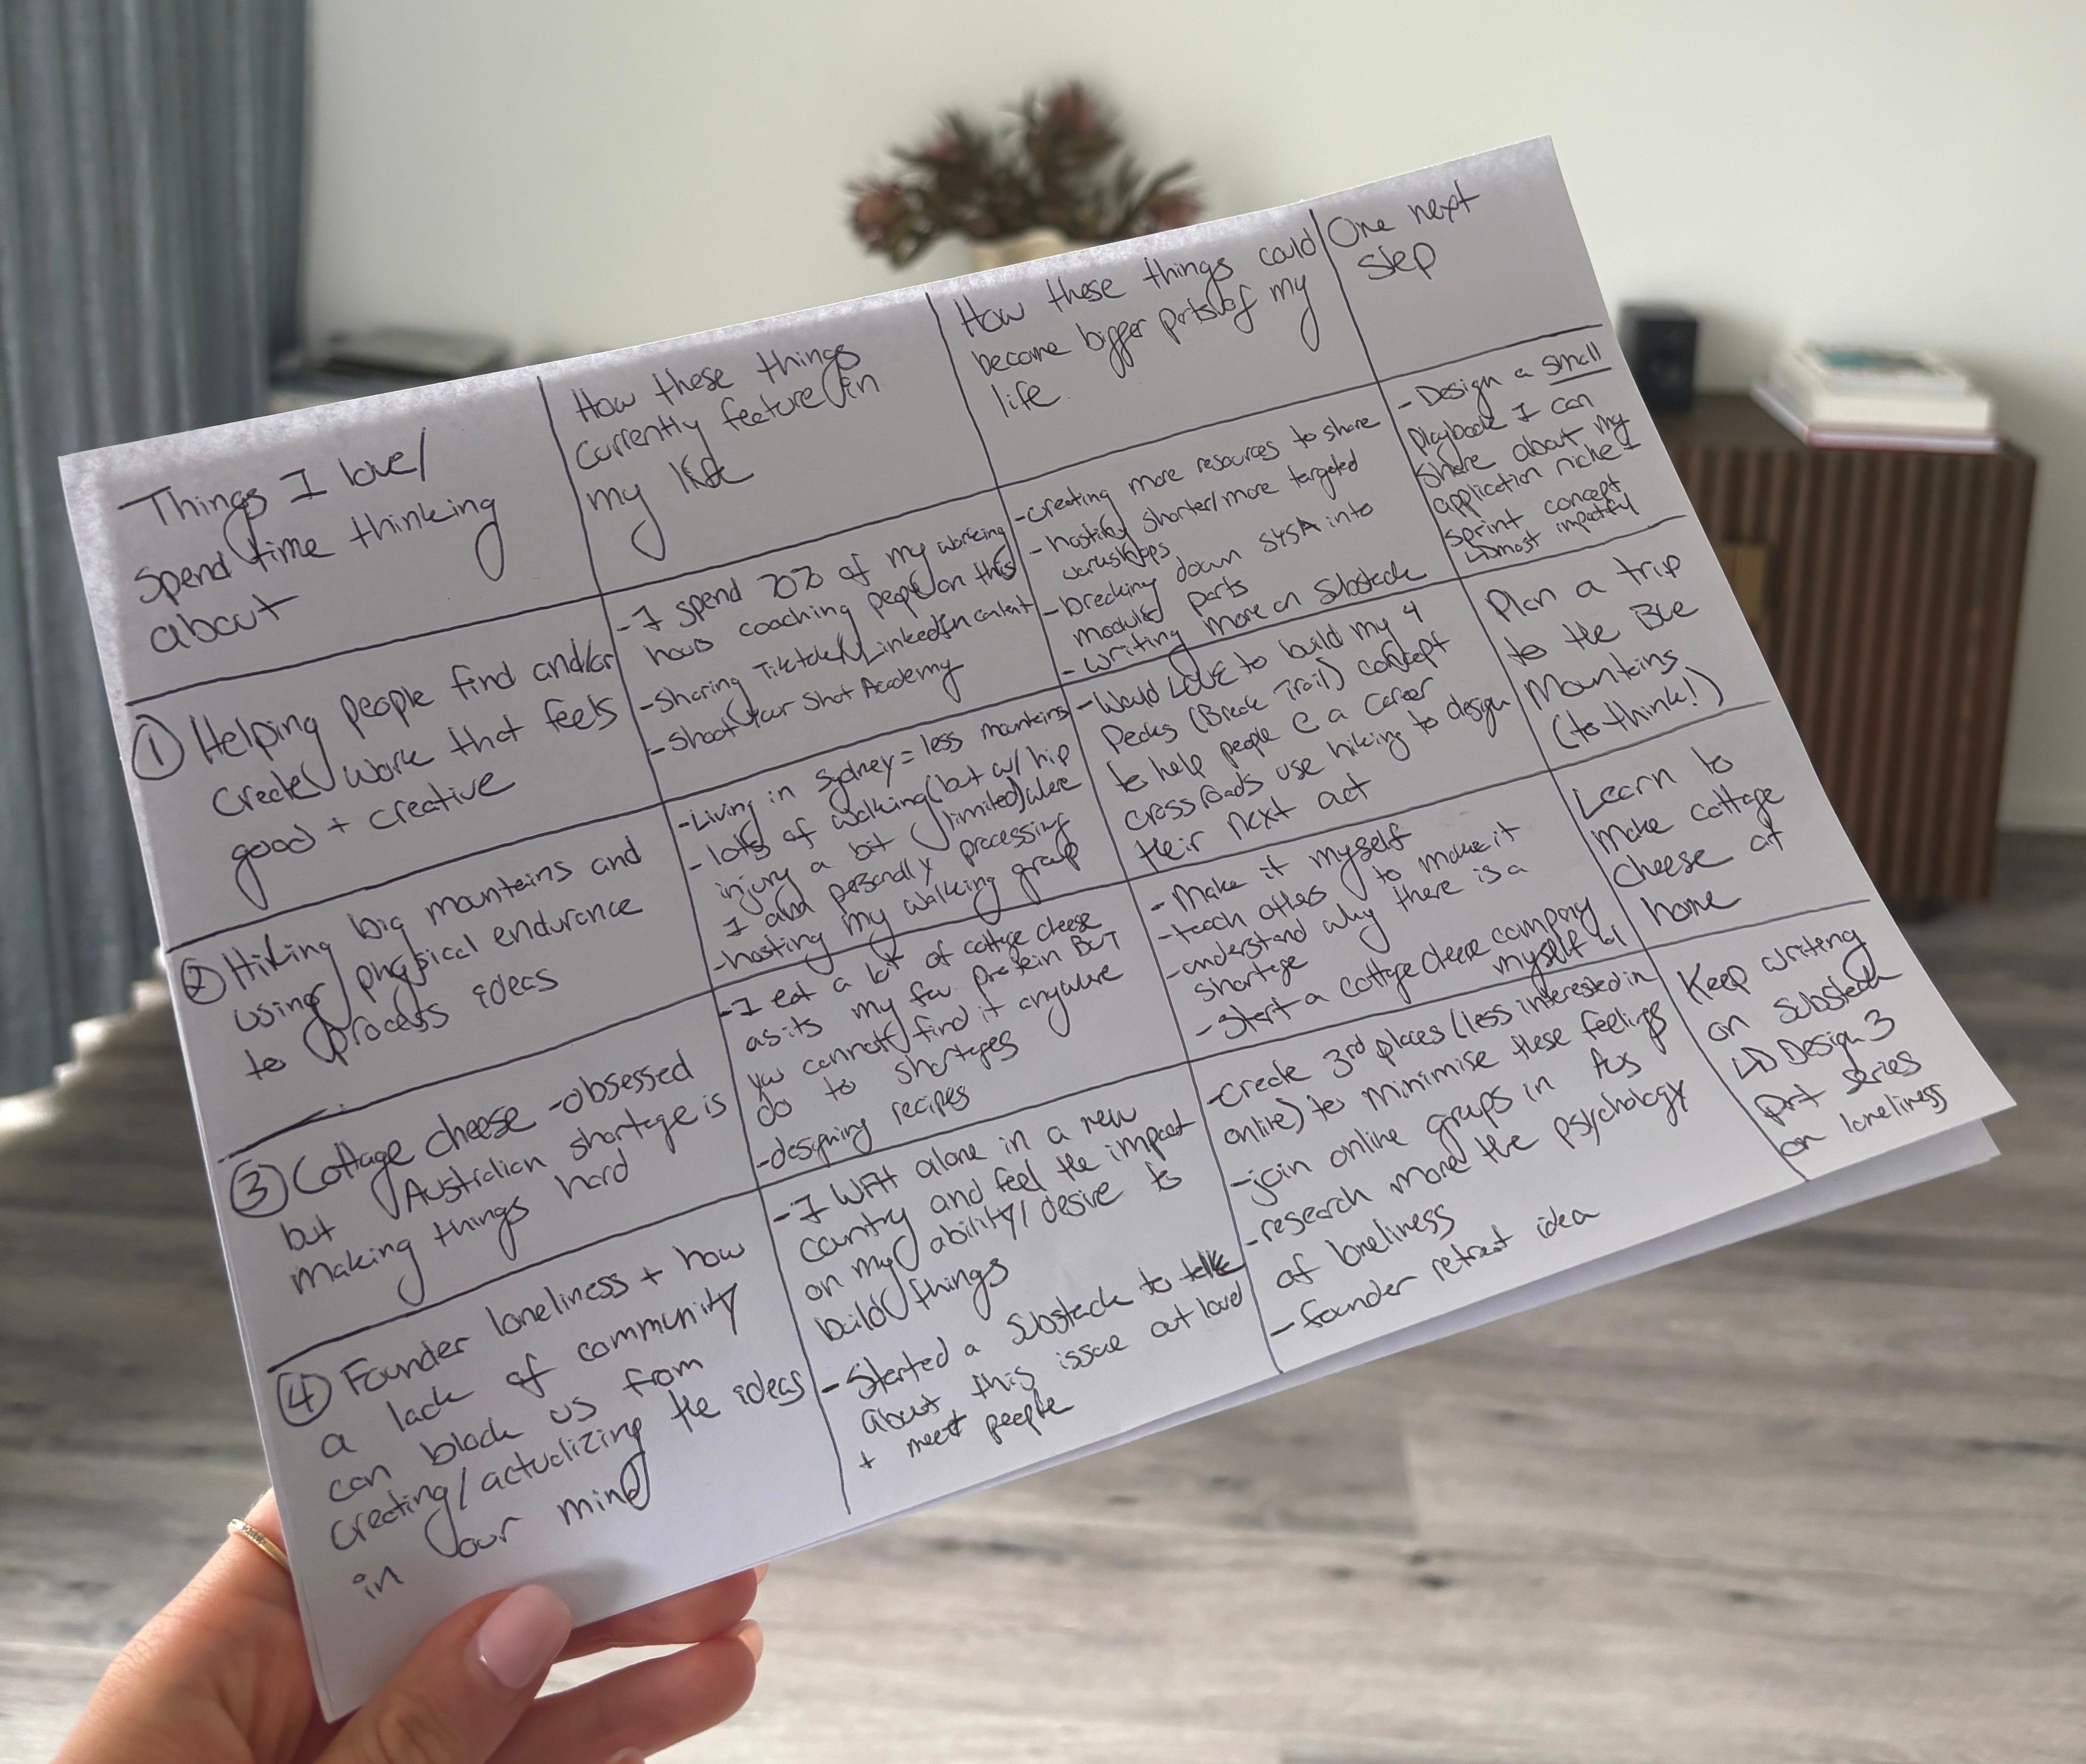 Things I love/
spend time thinking
about
How these things
currently feature in
my life
How these things could
become bigger parts of my
life.
One next
step
① Helping people find and/or
create work that feels
good + creative
- I spend 70% of my working
hours coaching people on this
- Sharing Tiktok/LinkedIn content
- Shoot Your Shot Academy
- creating more resources to share
- hosting shorter/more targeted
workshops
- breaking down SYSA into
modules parts
- writing more on Substack
- Design a small
playbook I can
share about my
application niche I
sprint concept
↳ most impactful
② Hiking big mountains and
using physical endurance
to process ideas
- Living in Sydney = less mountains
- lots of walking (but w/ hip
injury a bit limited) where
I am personally processing
- hosting my walking group
- Would LOVE to build my 4
Peaks (Break Trail) concept
to help people @ a career
crossroads use hiking to design
their next act
Plan a trip
to the Blue
Mountains
(to think!)
③ Cottage cheese - obsessed
but Australian shortage is
making things hard
- I eat a bit of cottage cheese
as its my fav protein BUT
you cannot find it anywhere
do to shortages
- designing recipes
- Make it myself
- teach others to make it
- understand why there is a
shortage
- Start a cottage cheese company
myself lol
Learn to
make cottage
cheese at
home
④ Founder loneliness + how
a lack of community
can block us from
creating/actualizing the ideas
in our mind
- I WFH alone in a new
country and feel the impact
on my ability/desire to
build things
- Started a Substack to talk
about this issue out loud
+ meet people
- Create 3rd places (less interested in
online) to minimise these feelings
- join online groups in Aus
- research more the psychology
of loneliness
- founder retreat idea
Keep writing
on Substack
↳ Design 3
part series
on loneliness